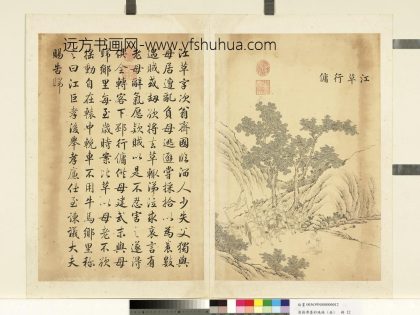 远方书画网- www.yfshuhua.com
江革行傭
江革字次翁齊國臨淄人少失父獨與
母居遭亂負母逃避嘗採拾以為養數
遇賊或劫欲將去革輒涕泣求哀言有
老母辭氣愿款賊以是不忍害之遂得
俱全轉客下邳行傭供母建武末與母
歸鄉里每至歲時案比革以母老不欲
搖動自在轅中輓車不用牛馬鄉里稱
之曰江巨孝後舉孝廉仕至諫議大夫
賜告歸